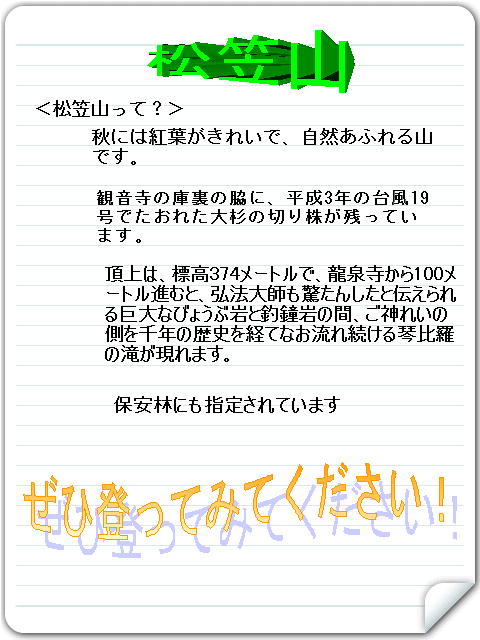 松笠山
＜松笠山って？＞
秋には紅葉がきれいで、自然あふれる山
です。
観音寺の庫裏の脇に、平成3年の台風19
号でたおれた大杉の切り株が残ってい
ます。
頂上は、標高374メートルで、龍泉寺から100メ
ートル進むと、弘法大師も驚たんしたと伝えられ
る巨大なびょうぶ岩と釣鐘岩の間、ご神れいの
側を千年の歴史を経てなお流れ続ける琴比羅
の滝が現れます。
保安林にも指定されています
ぜひ登ってみてください！